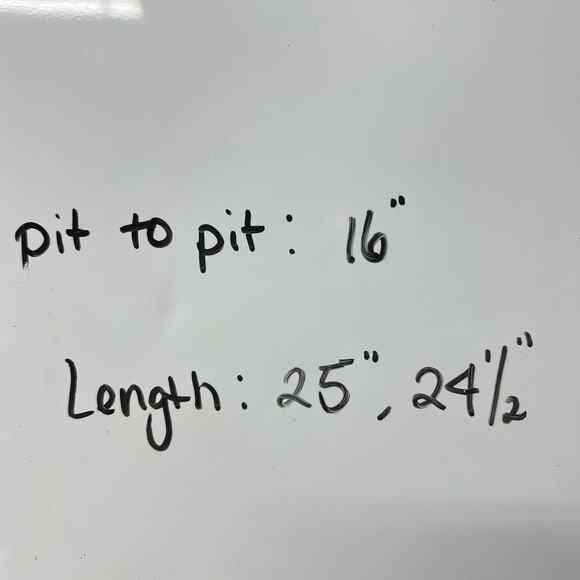 pit to pit: 16"
Length: 25", 24 1/2"